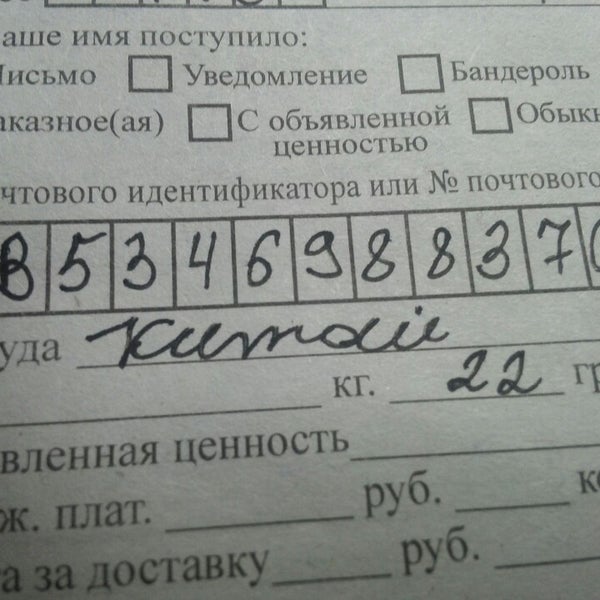 аше имя поступило:
Письмо Уведомление Бандероль
аказное(ая) С объявленной Обыкн
ценностью
чтового идентификатора или № почтового
В 5 3 4 6 9 8 8 3 7
уда Китай
кг. 22 гр
вленная ценность
ж. плат. руб. ко
а за доставку руб.